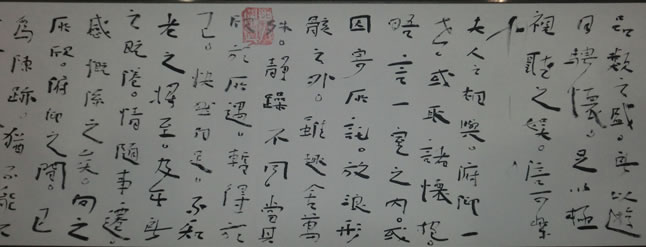 品類之盛。所以遊
目騁懷。足以極
視聽之娛。信可樂
也
夫人之相與。俯仰一
世。或取諸懷抱。
晤言一室之內。或
因寄所託。放浪形
骸之外。雖趣舍萬
殊。靜躁不同當其
欣於所遇。暫得於
己。快然自足。不知
老之將至。及其所
之既倦。情隨事遷。
感慨係之矣。向之
所欣。俯仰之間。已
為陳跡。猶不能